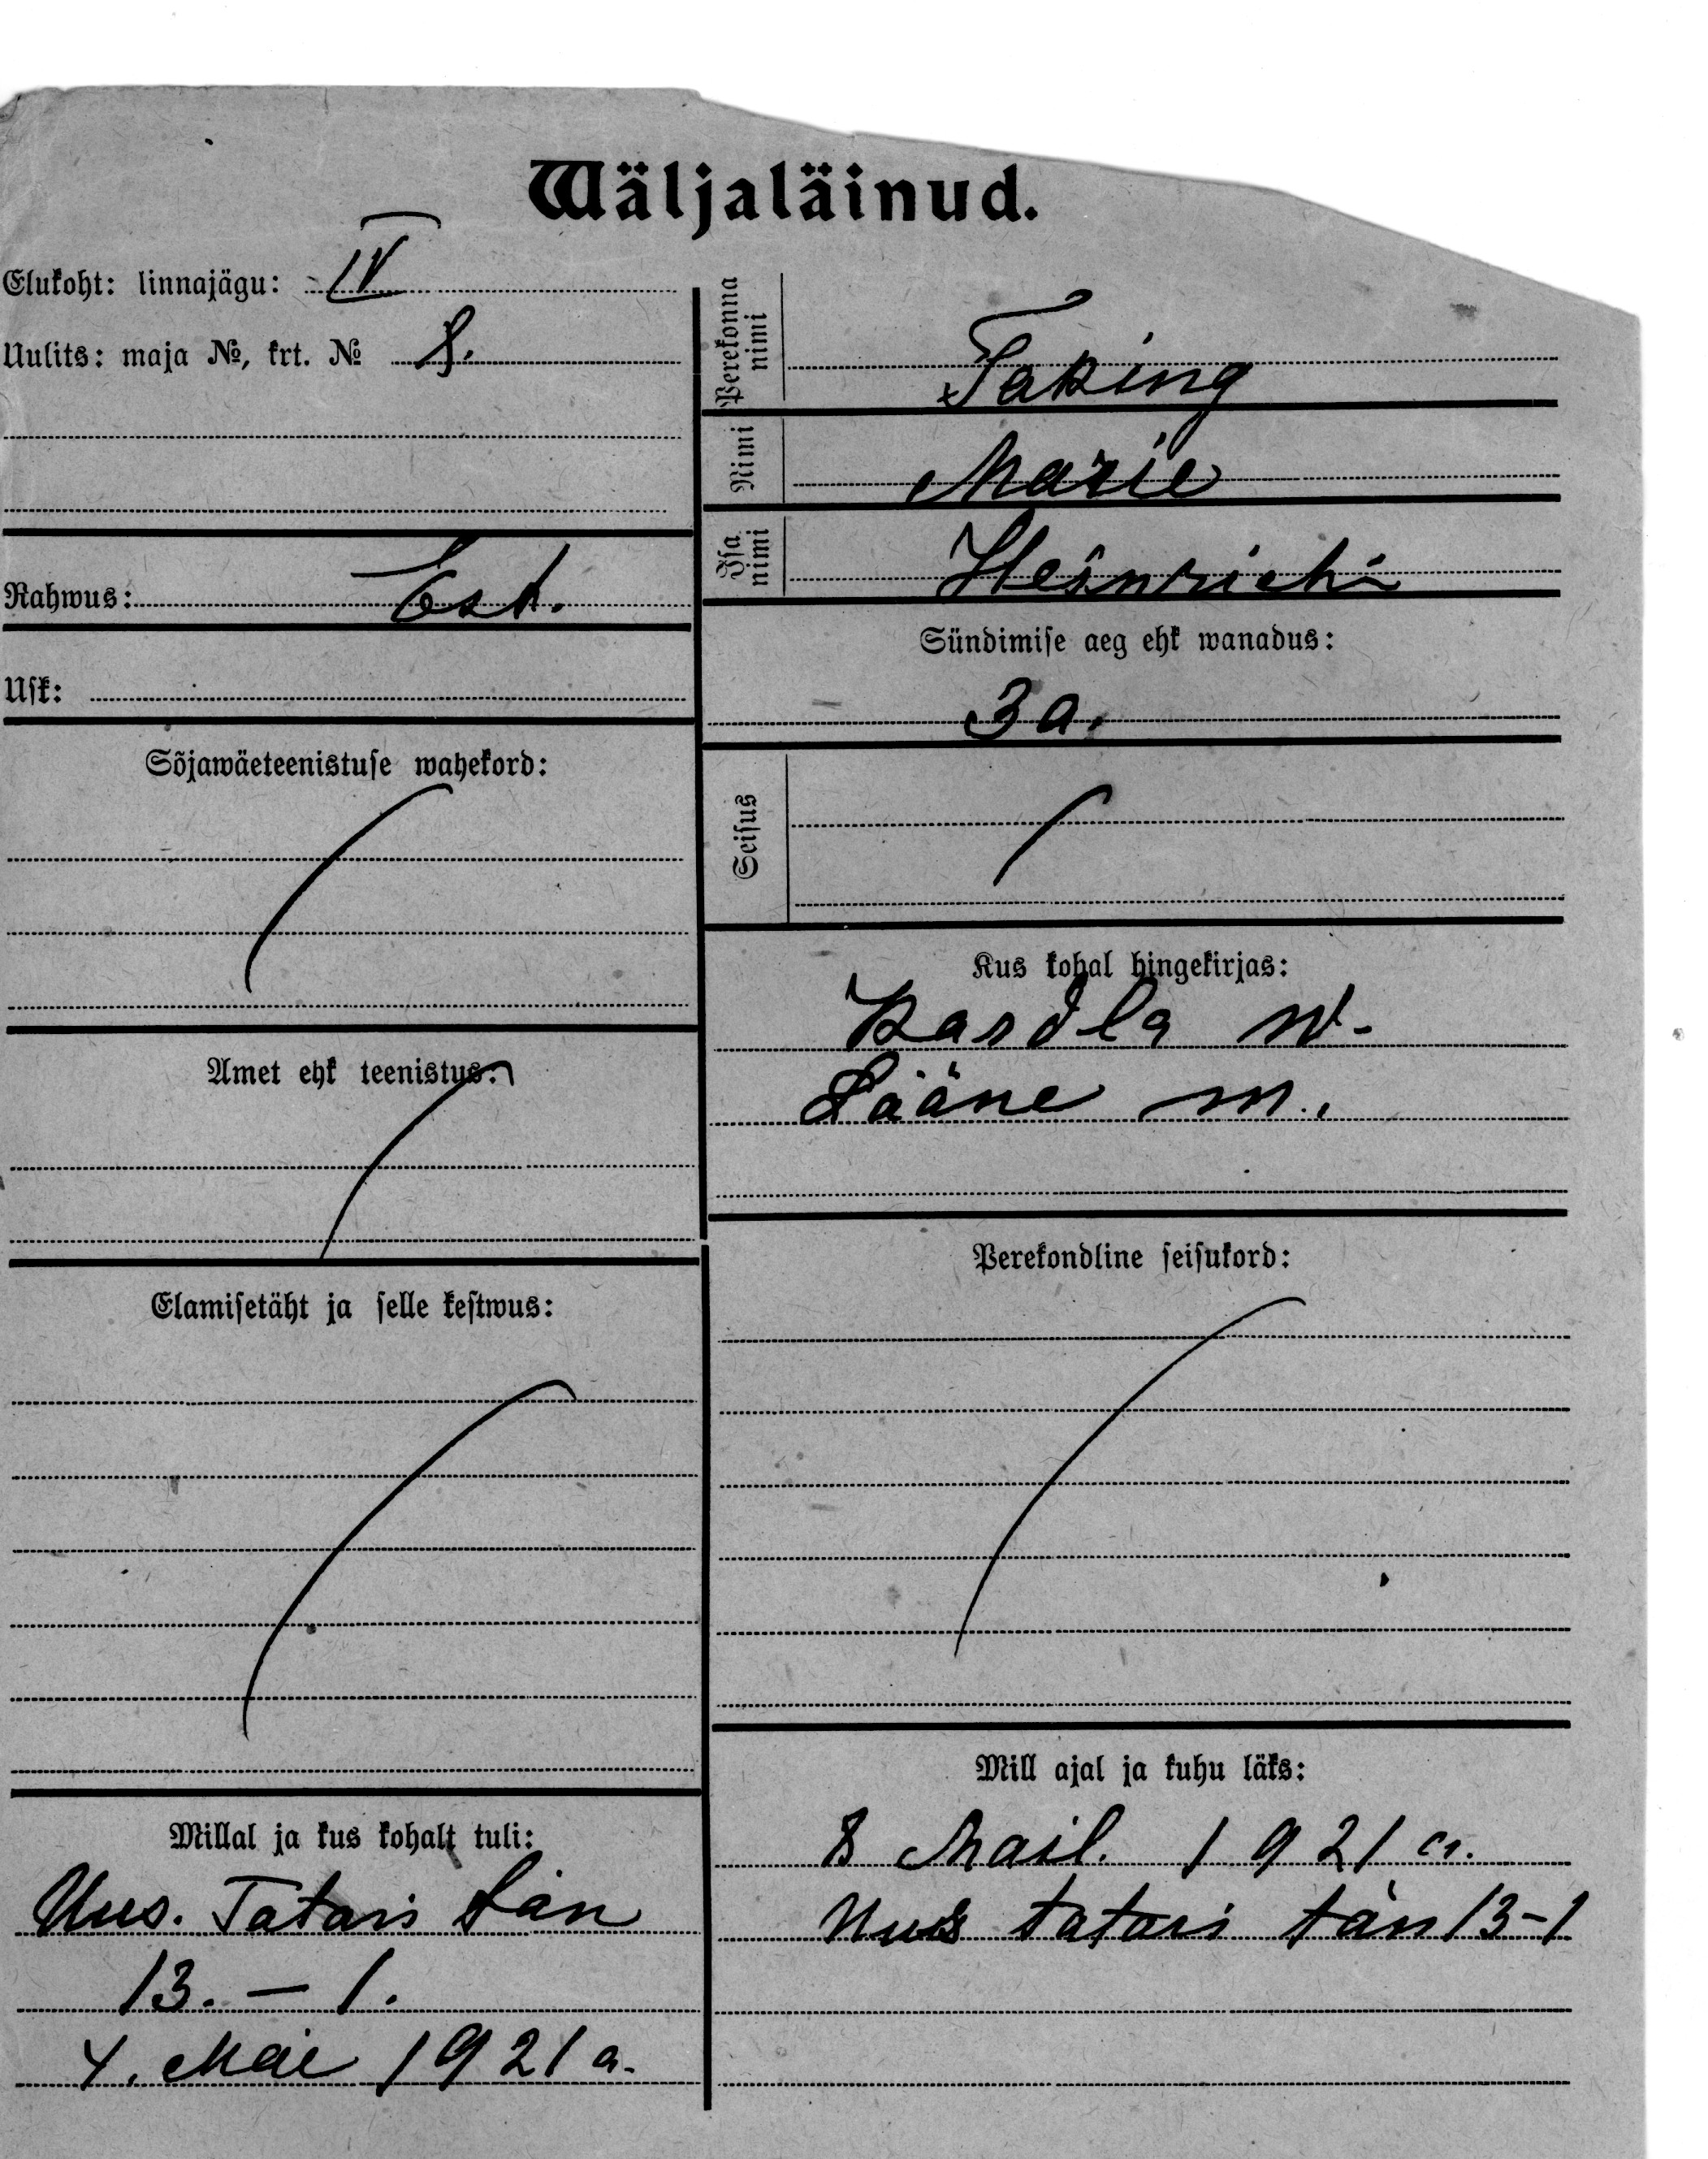 Wäljaläinud.
Elukoht: linnajägu: IV
Uulits: maja №, krt. № 8.
Rahwus: Est.
Usk:
Sõjawäeteenistuse wahekord:
Amet ehk teenistus:
Elamisetäht ja selle kestwus:
Millal ja kus kohalt tuli:
Uus. Tatari tän
13. – 1.
4. Mai 1921 a.
Perekonna
nimi
Taking
Nimi
Marie
Isa
nimi
Heinrich
Sündimise aeg ehk wanadus:
3 a.
Seisus
Kus kohal hingekirjas:
Kardla w.
Lääne m.
Perekondline seisukord:
Mill ajal ja kuhu läks:
8 Mail. 1921 a.
Uus tatari tän 13-1